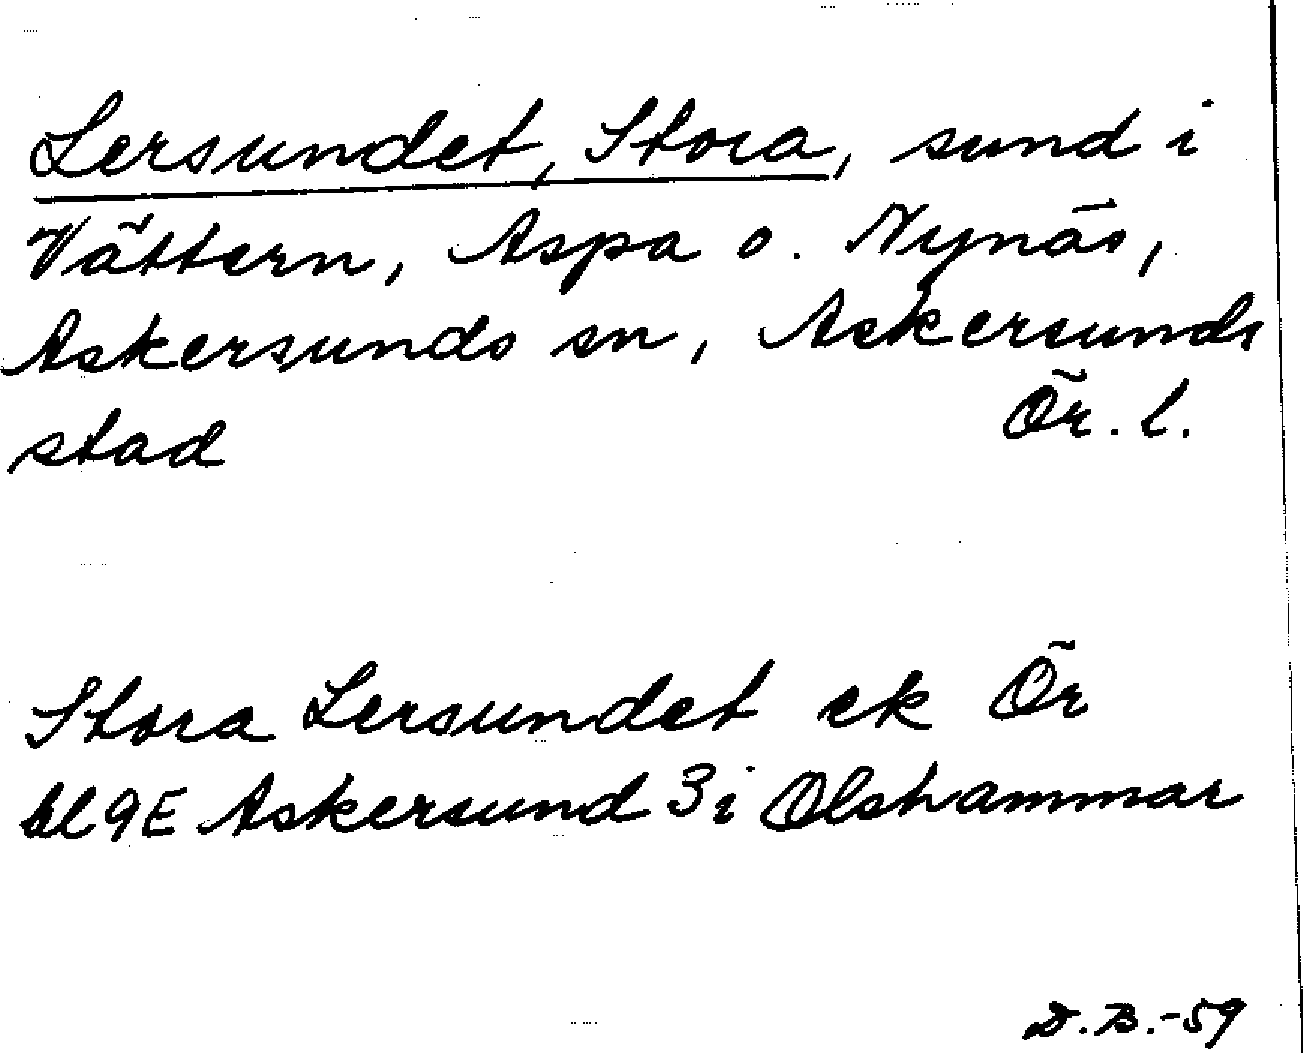 Lersundet, Stora, sund i
Vättern, Aspa o. Nynäs,
Askersunds sn, Askersunds
stad Ör. l.
Stora Lersundet ek Ör
bl 9E Askersund 3i Olshammar
D.B.-59